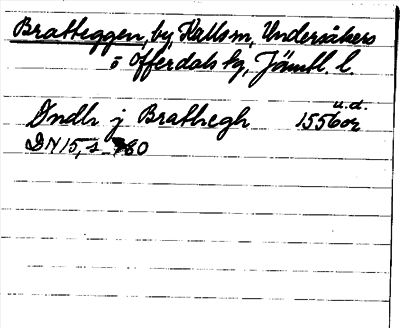 Bratteggen, by, Kalls sn, Undersåkers
o Offerdals tg, Jämtl. l.
u.d.
Indh j Brathegh 1556 or
DN 15, s 780